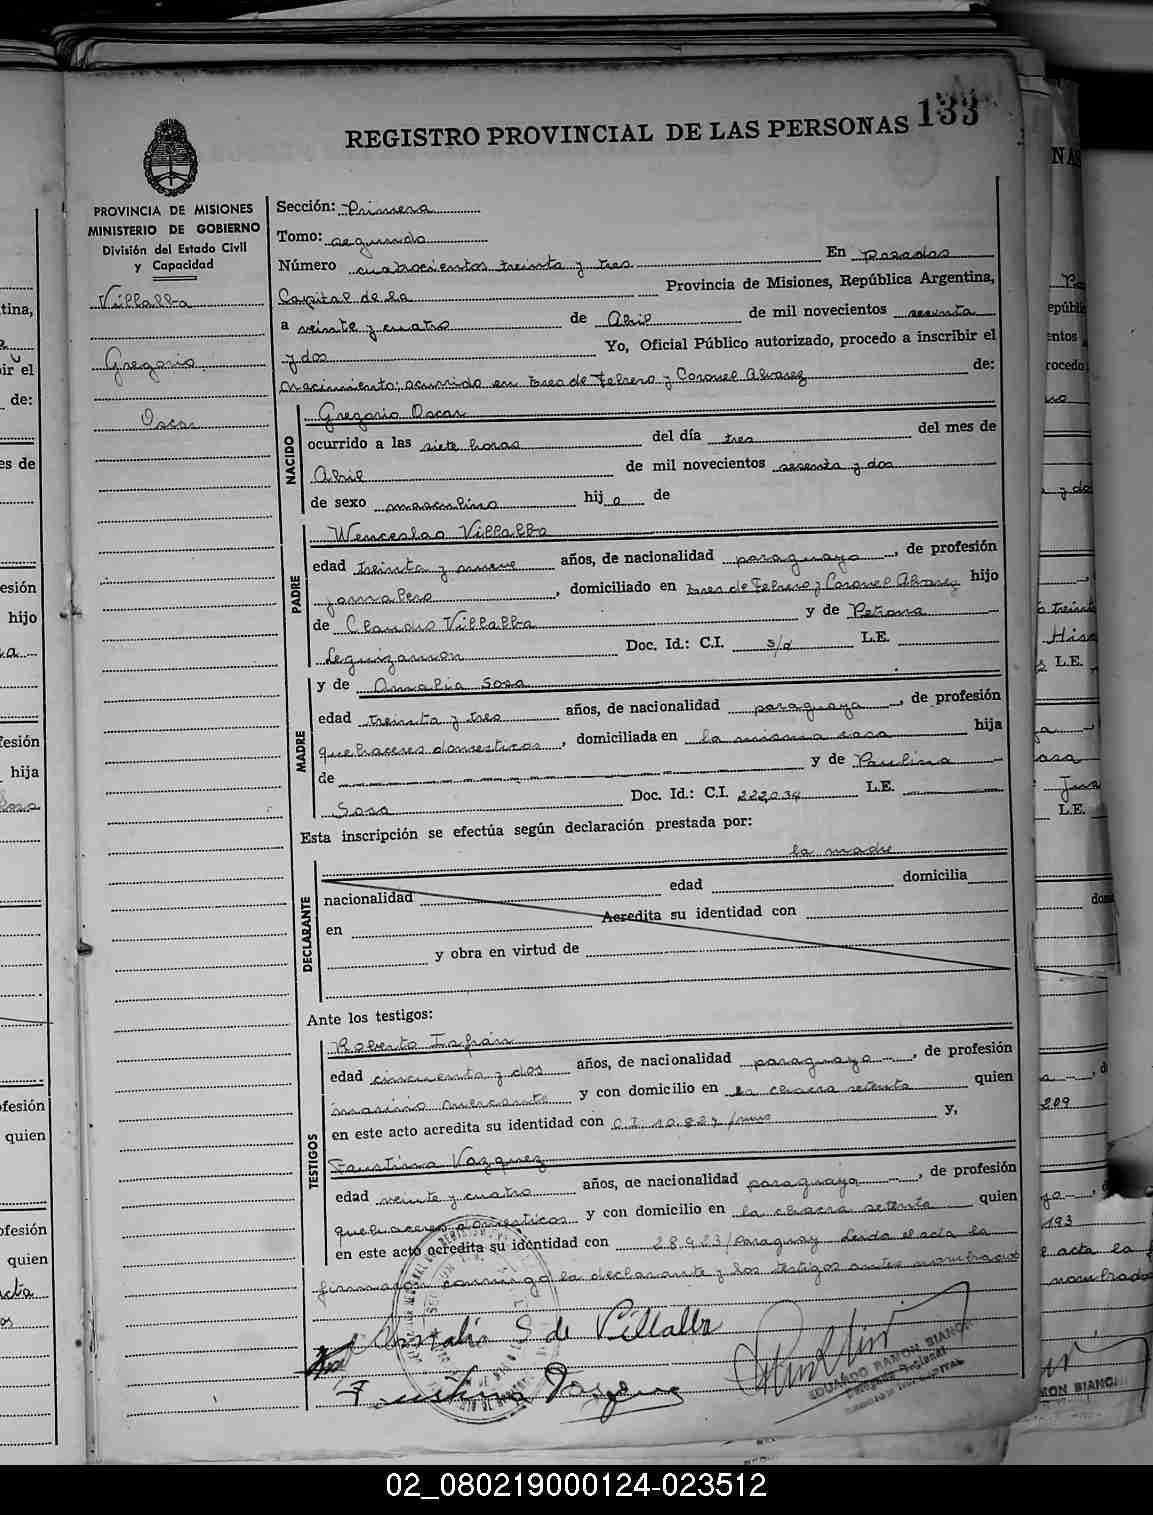 133
REGISTRO PROVINCIAL DE LAS PERSONAS
PROVINCIA DE MISIONES
MINISTERIO DE GOBIERNO
División del Estado Civil
y Capacidad
Villalba
Gregorio
Oscar
Sección: Primera
Tomo: segundo
Número cuatrocientos treinta y tres En Posadas
Capital de la Provincia de Misiones, República Argentina,
a veinte y cuatro de Abril de mil novecientos sesenta
y dos Yo, Oficial Público autorizado, procedo a inscribir el
nacimiento; ocurrido en tres de Febrero y Coronel Alvarez de:
NACIDO
Gregorio Oscar
ocurrido a las siete horas del día tres del mes de
Abril de mil novecientos sesenta y dos
de sexo masculino hijo de
PADRE
Wenceslao Villalba
edad treinta y nueve años, de nacionalidad paraguaya, de profesión
jornalero, domiciliado en tres de Febrero y Coronel Alvarez hijo
de Claudio Villalba y de Petrona
Leguizamon Doc. Id.: C.I. s/d L.E.
MADRE
y de Amalia Sosa
edad treinta y tres años, de nacionalidad paraguaya, de profesión
quehaceres domesticos, domiciliada en la misma casa hija
de y de Paulina
Sosa Doc. Id.: C.I. 222.034 L.E.
Esta inscripción se efectúa según declaración prestada por:
la madre
DECLARANTE
nacionalidad edad domicilia
en Acredita su identidad con
y obra en virtud de
Ante los testigos:
TESTIGOS
Roberto Insfrán
edad cincuenta y dos años, de nacionalidad paraguayo, de profesión
marino mercante y con domicilio en la chacra setenta quien
en este acto acredita su identidad con C.I. 10.827/mnes y,
Faustina Vazquez
edad veinte y cuatro años, de nacionalidad paraguaya, de profesión
quehaceres domesticos y con domicilio en la chacra setenta quien
en este acto acredita su identidad con 28.923/Paraguay Leida el acta la
firmaron conmigo la declarante y los testigos antes nombrados
Amalia S de Villalba
Faustina Vazquez
EDUARDO RAMON BIANCHI
Delegado Regional
02_080219000124-023512